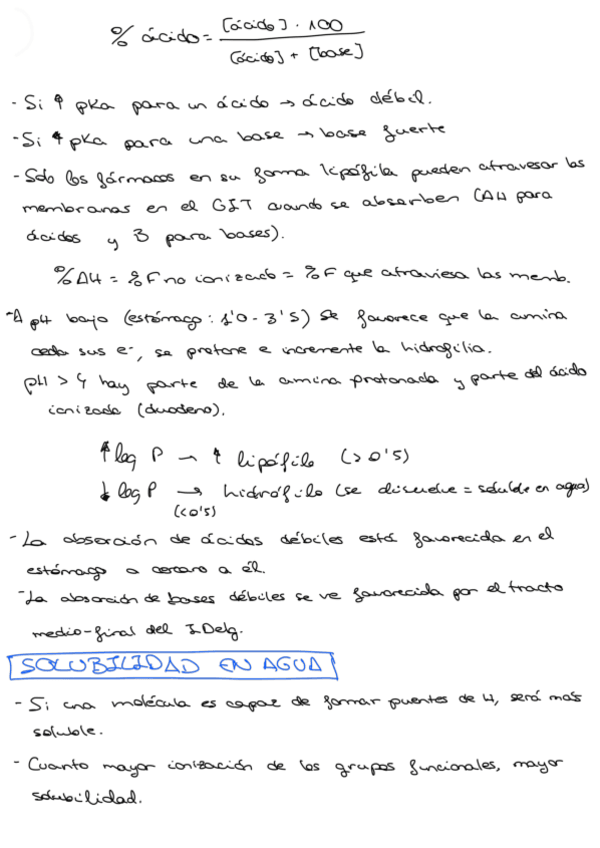 % ácido = [ácido] · 100 / [ácido] + [base]
- Si ↑ pKa para un ácido → ácido débil.
- Si ↑ pKa para una base → base fuerte
- Sólo los fármacos en su forma lipófila pueden atravesar las
membranas en el GIT cuando se absorben (AH para
ácidos y B para bases).
% AH = % F no ionizado = % F que atraviesa las memb.
- A pH bajo (estómago: 1'0 - 3'5) se favorece que la amina
ceda sus e-, se protone e incremente la hidrofilia.
pH > 4 hay parte de la amina protonada y parte del ácido
ionizada (duodeno).
↑ log P → ↑ lipófilo (> 0'5)
↓ log P → hidrófilo (se disuelve = soluble en agua)
(< 0'5)
- La absorción de ácidos débiles está favorecida en el
estómago o cercano a él.
- La absorción de bases débiles se ve favorecida por el tracto
medio-final del I.Delg.
SOLUBILIDAD EN AGUA
- Si una molécula es capaz de formar puentes de H, será más
soluble.
- Cuanto mayor ionización de los grupos funcionales, mayor
solubilidad.